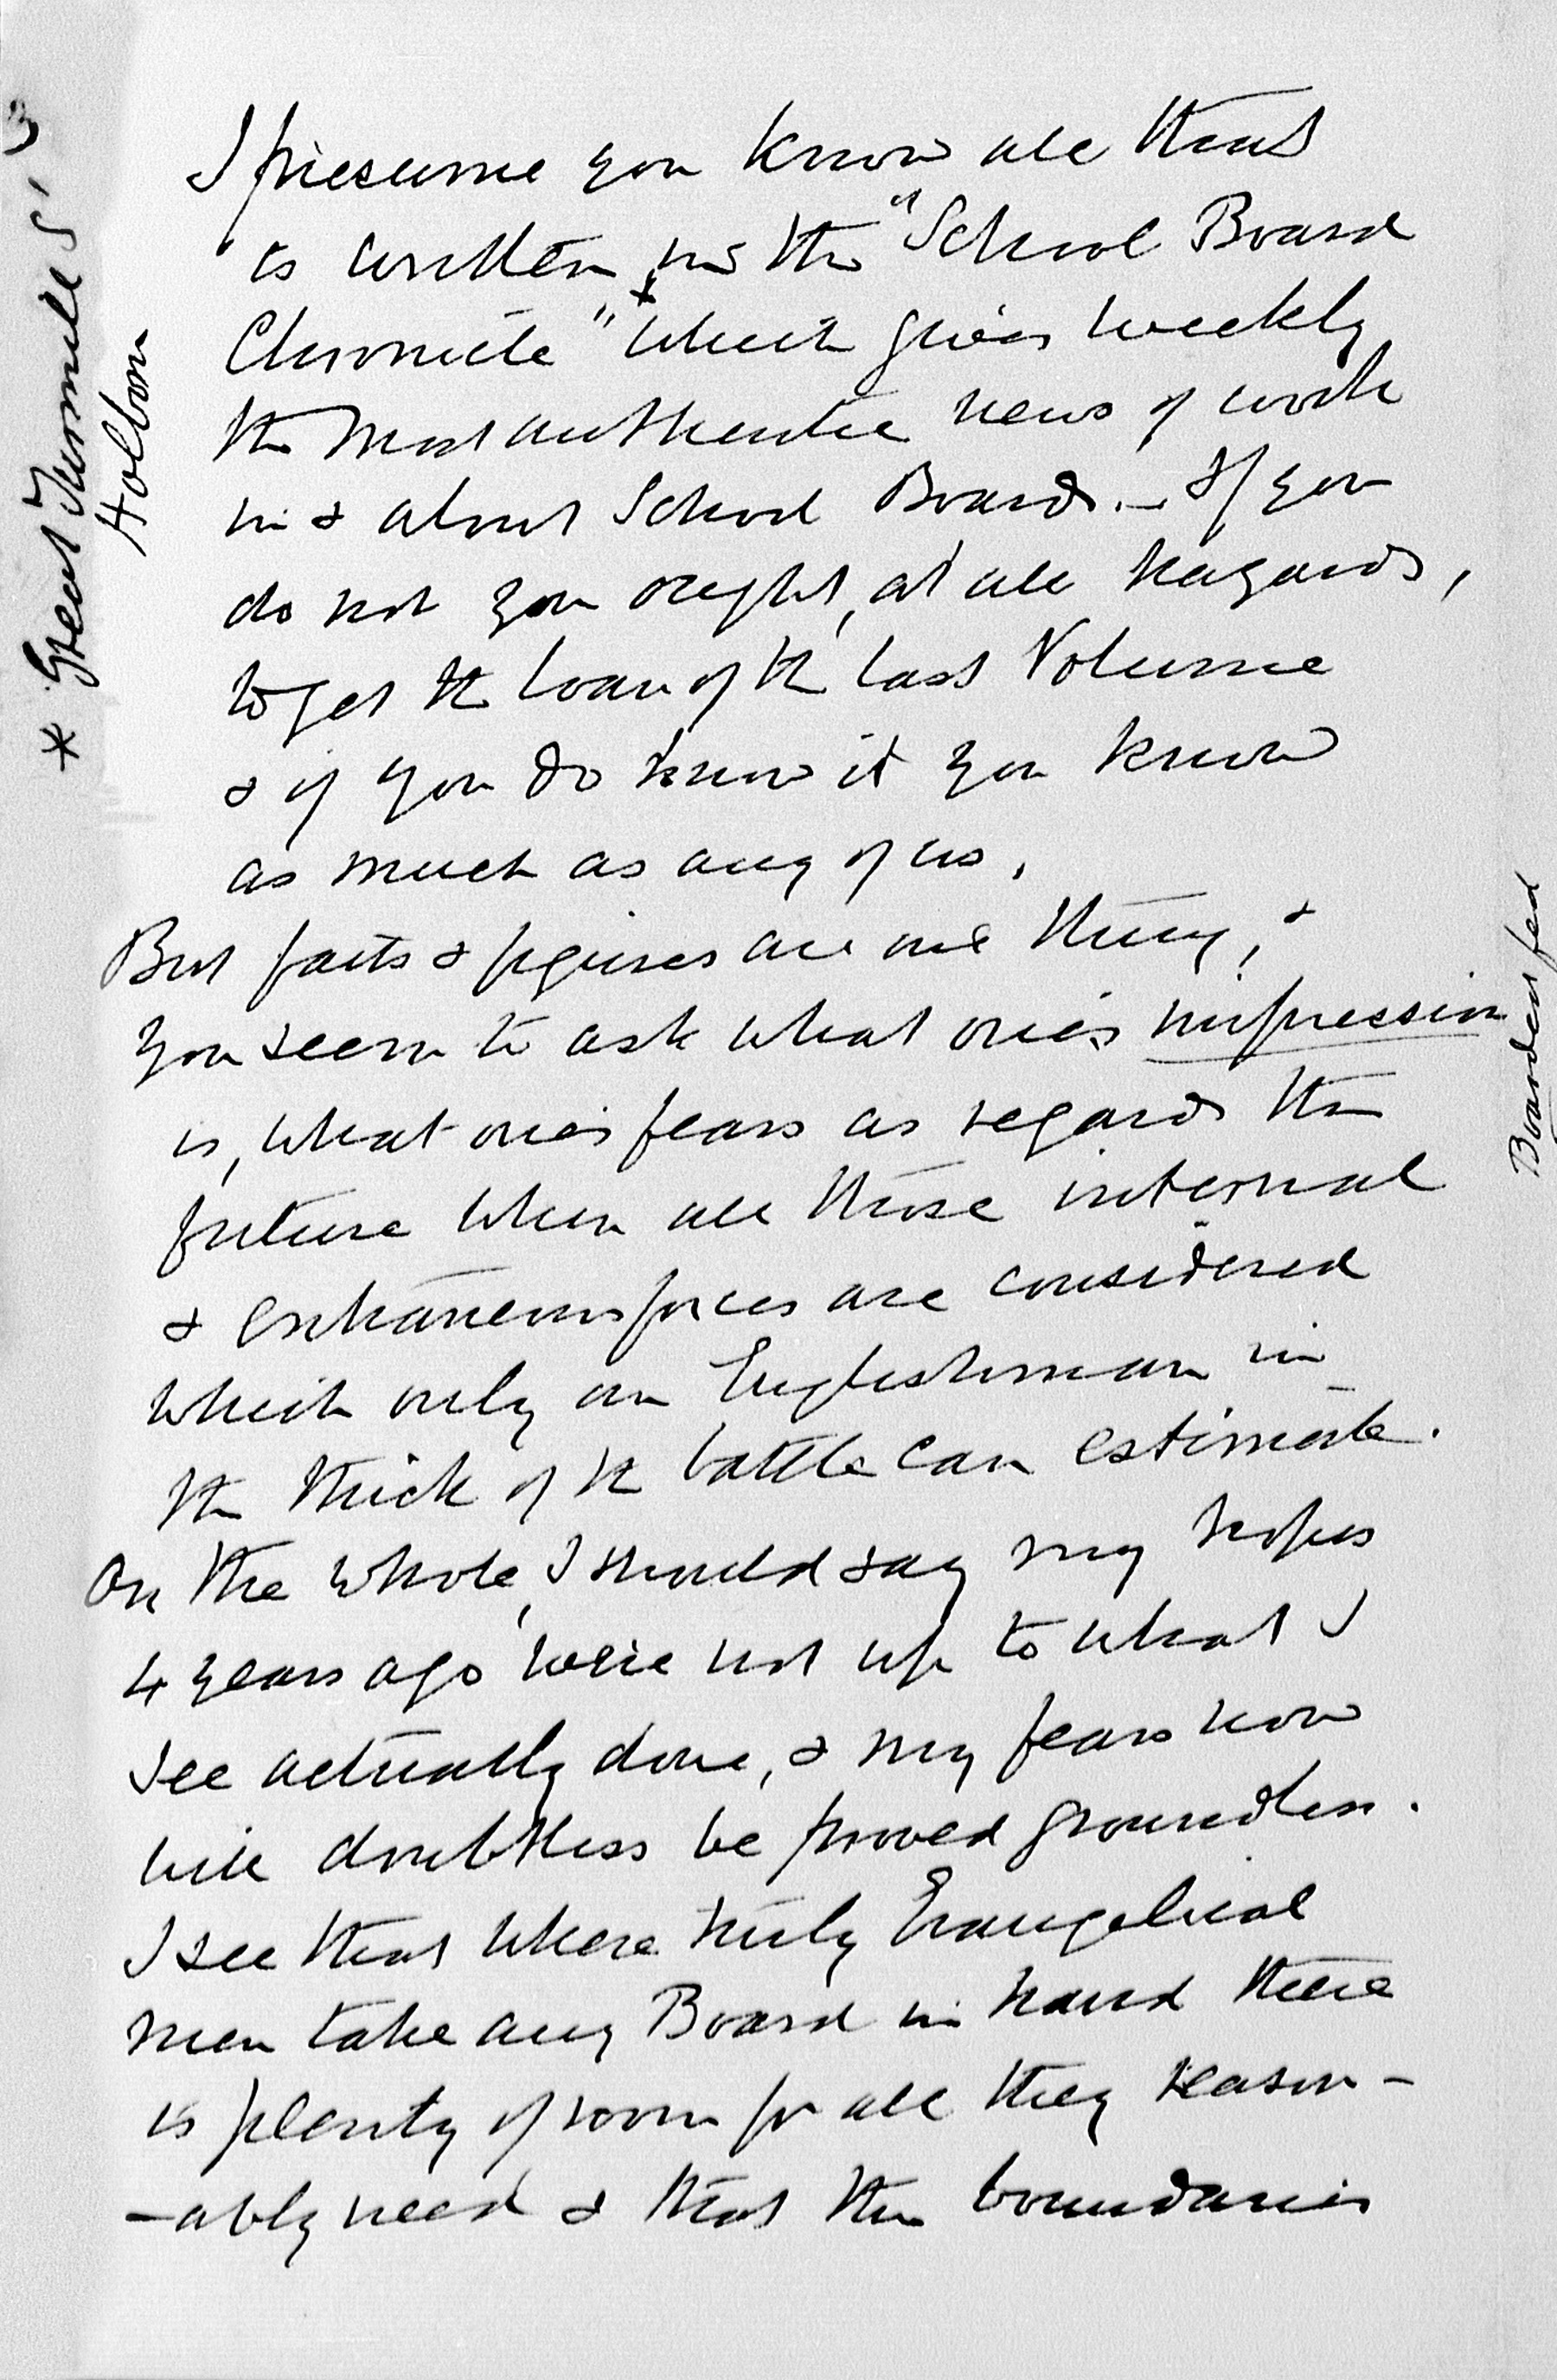 I presume you know all that
is written in the "School Board
Chronicle" * which gives weekly
the most authentic news of work
in & about School Boards. – If you
do not you ought, at all hazards,
to get the loan of the last Volume
& if you do know it you know
as much as any of us.
But facts & figures are one thing, &
you seem to ask what one's impression
is, what one's fears as regards the
future when all those internal
& extraneous forces are considered
which only an Englishman in
the thick of the battle can estimate.
On the whole, I should say my hopes
4 years ago were not up to what I
see actually done, & my fears now
will doubtless be proved groundless.
I see that where truly Evangelical
men take any Board in hand there
is plenty of room for all they reason-
-ably need & that the boundaries
* Great Turnmill S'
Holborn